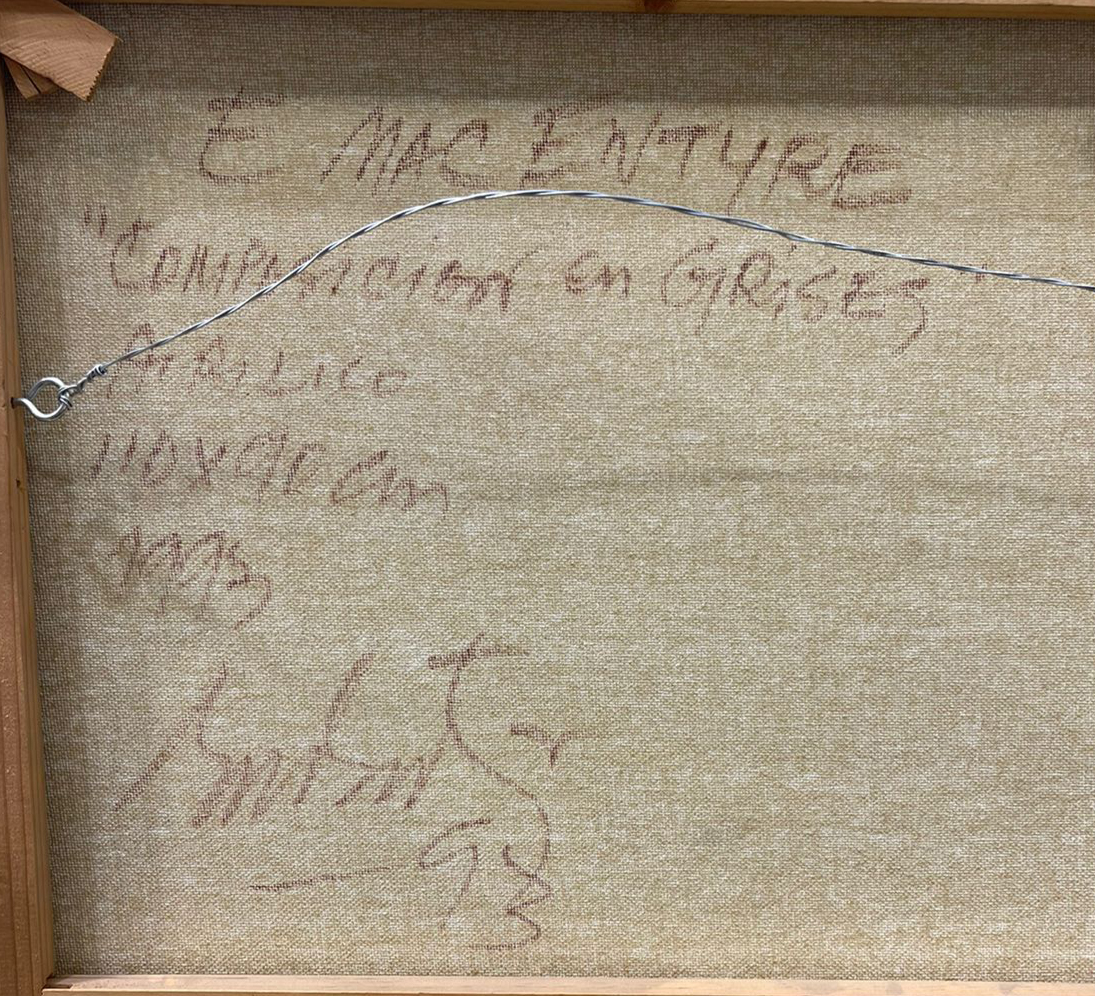 E MAC ENTYRE
"COMPOSICION en GRISES"
ACRILICO
110 X 90 Cm
1993
93